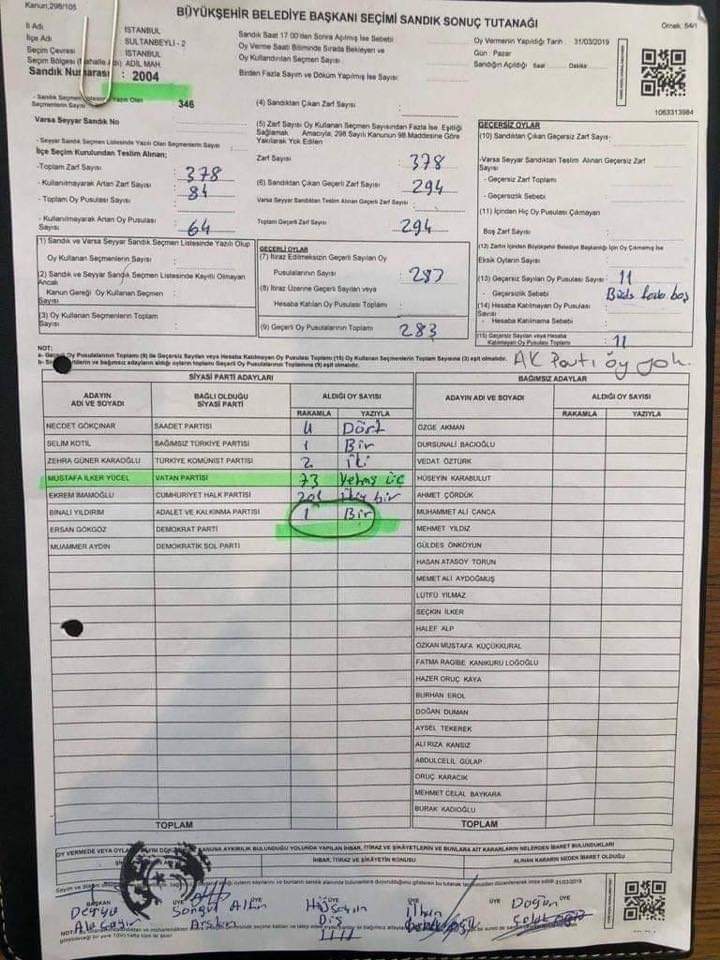 Kanun:298/105
BÜYÜKŞEHİR BELEDİYE BAŞKANI SEÇİMİ SANDIK SONUÇ TUTANAĞI
Örnek: 54/1
İl Adı : İSTANBUL
İlçe Adı : SULTANBEYLİ - 2
Seçim Çevresi : İSTANBUL
Seçim Bölgesi (Mahalle Adı): ADİL MAH.
Sandık Numarası : 2004
Sandık Saat 17:00'den Sonra Açılmış İse Sebebi
Oy Verme Saati Bitiminde Sırada Bekleyen ve
Oy Kullandırılan Seçmen Sayısı
Birden Fazla Sayım ve Döküm Yapılmış İse Sayısı
Oy Vermenin Yapıldığı Tarih : 31/03/2019
Gün : Pazar
Sandığın Açıldığı Saat Dakika
1063313984
- Sandık Seçmen Listesinde Yazılı Olan
Seçmenlerin Sayısı : 346
Varsa Seyyar Sandık No
- Seyyar Sandık Seçmen Listesinde Yazılı Olan Seçmenlerin Sayısı :
İlçe Seçim Kurulundan Teslim Alınan;
-Toplam Zarf Sayısı : 378
- Kullanılmayarak Artan Zarf Sayısı : 84
- Toplam Oy Pusulası Sayısı :
- Kullanılmayarak Artan Oy Pusulası Sayısı : 64
(4) Sandıktan Çıkan Zarf Sayısı :
(5) Zarf Sayısı Oy Kullanan Seçmen Sayısından Fazla İse, Eşitliği
Sağlamak Amacıyla, 298 Sayılı Kanunun 98 Maddesine Göre
Yakılarak Yok Edilen
Zarf Sayısı : 378
(6) Sandıktan Çıkan Geçerli Zarf Sayısı : 294
Varsa Seyyar Sandıktan Teslim Alınan Geçerli Zarf Sayısı :
Toplam Geçerli Zarf Sayısı : 294
GEÇERSİZ OYLAR
(10) Sandıktan Çıkan Geçersiz Zarf Sayısı :
-Varsa Seyyar Sandıktan Teslim Alınan Geçersiz Zarf
Sayısı
- Geçersiz Zarf Toplamı :
- Geçersizlik Sebebi :
(11) İçinden Hiç Oy Pusulası Çıkmayan
Boş Zarf Sayısı :
(12) Zarfın İçinden Büyükşehir Belediye Başkanlığı İçin Oy Çıkmamış İse
Eksik Oyların Sayısı :
(13) Geçersiz Sayılan Oy Pusulası Sayısı : 11
- Geçersizlik Sebebi :
(14) Hesaba Katılmayan Oy Pusulası
Sayısı
- Hesaba Katılmama Sebebi :
(15) Geçersiz Sayılan veya Hesaba
Katılmayan Oy Pusulası Toplamı : 11
(1) Sandık ve Varsa Seyyar Sandık Seçmen Listesinde Yazılı Olup
Oy Kullanan Seçmenlerin Sayısı :
(2) Sandık ve Seyyar Sandık Seçmen Listesinde Kayıtlı Olmayan
Ancak
Kanun Gereği Oy Kullanan Seçmen
Sayısı
(3) Oy Kullanan Seçmenlerin Toplam
Sayısı
GEÇERLİ OYLAR
(7) İtiraz Edilmeksizin Geçerli Sayılan Oy
Pusulalarının Sayısı : 283
(8) İtiraz Üzerine Geçerli Sayılan veya
Hesaba Katılan Oy Pusulası Toplamı :
(9) Geçerli Oy Pusulalarının Toplamı : 283
NOT:
AK Parti oy yok.
SİYASİ PARTİ ADAYLARI
BAĞIMSIZ ADAYLAR
ADAYIN ADI VE SOYADI BAĞLI OLDUĞU SİYASİ PARTİ ALDIĞI OY SAYISI RAKAMLA YAZIYLA
ADAYIN ADI VE SOYADI ALDIĞI OY SAYISI RAKAMLA YAZIYLA
NECDET GÖKÇINAR SAADET PARTİSİ 4 Dört ÖZGE AKMAN
SELİM KOTİL BAĞIMSIZ TÜRKİYE PARTİSİ 1 Bir DURSUNALİ BACIOĞLU
ZEHRA GÜNER KARAOĞLU TÜRKİYE KOMÜNİST PARTİSİ 2 iki VEDAT ÖZTÜRK
MUSTAFA İLKER YÜCEL VATAN PARTİSİ 73 Yetmiş üç HÜSEYİN KARABULUT
EKREM İMAMOĞLU CUMHURİYET HALK PARTİSİ 201 AHMET ÇÖRDÜK
BİNALİ YILDIRIM ADALET VE KALKINMA PARTİSİ 1 Bir MUHAMMET ALİ CANCA
ERSAN GÖKGÖZ DEMOKRAT PARTİ MEHMET YILDIZ
MUAMMER AYDIN DEMOKRATİK SOL PARTİ GÜLDES ÖNKOYUN
HASAN ATASOY TORUN
MEMET ALİ AYDOĞMUŞ
LÜTFÜ YILMAZ
SEÇKİN İLKER
HALEF ALP
ÖZKAN MUSTAFA KÜÇÜKKURAL
FATMA RAGİBE KANIKURU LOĞOĞLU
HAZER ORUÇ KAYA
BURHAN EROL
DOĞAN DUMAN
AYSEL TEKEREK
ALİ RIZA KANSIZ
ABDULCELİL GÜLAP
ORUÇ KARACIK
MEHMET CELAL BAYKARA
BURAK KADIOĞLU
TOPLAM TOPLAM
İHBAR, İTİRAZ VE ŞİKAYETİN KONUSU ALINAN KARARIN NEDEN İBARET OLDUĞU
BAŞKAN ÜYE ÜYE ÜYE ÜYE
Derya Songül Altın Hüseyin İlhan Doğan
Arslan Diş